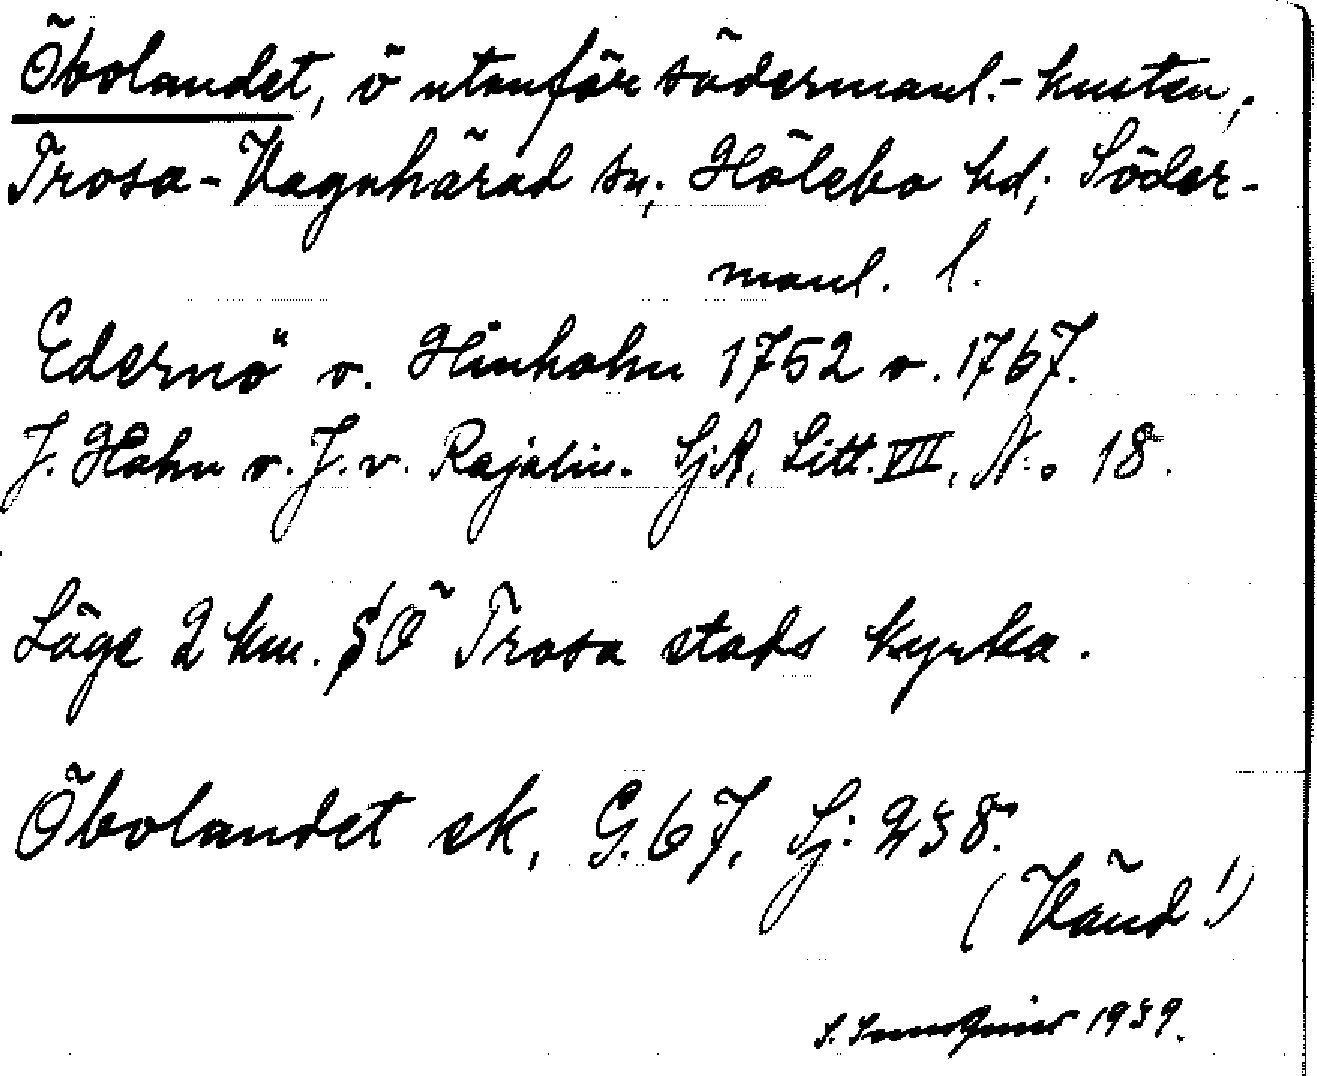 Öbolandet, ö utanför södermanl.-kusten,
Trosa-Vagnhärad sn; Hölebo hd; Söder-
manl. l.
Edernö v. Hinhohn 1752 o. 1767.
J. Hahn o. J. v. Rajalin. SjA, Litt. VII, N:o 18.
Läge 2 km. SÖ Trosa stads kyrka.
Öbolandet ek, G. 67, Sj: 238.
(Vänd!)
1939.